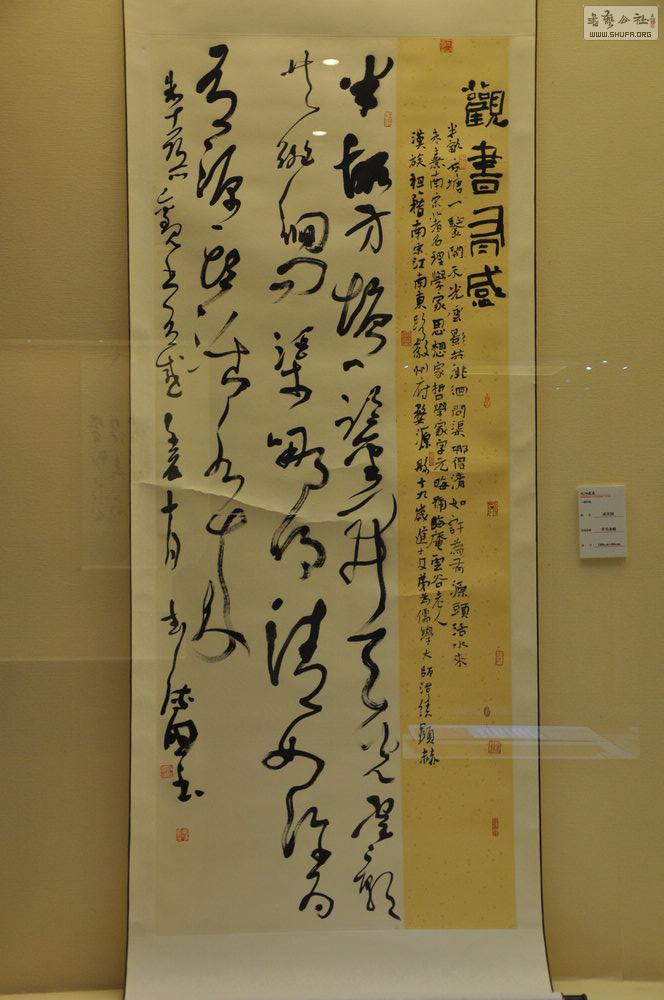 書藝公社
WWW.SHUFA.ORG
觀書有感
半畝方塘一鑒開天光雲影共徘徊問渠哪得清如許為有源頭活水來
朱熹南宋著名理學家思想家哲學家字元晦晦庵雲谷老人
漢族祖籍南宋江南東路徽州府婺源縣十九歲進士及第為儒學大師治績顯赫
半畝方塘一鑒開天光雲影
共徘徊問渠哪得清如許為
有源頭活水來
觀書有感辛亥十月